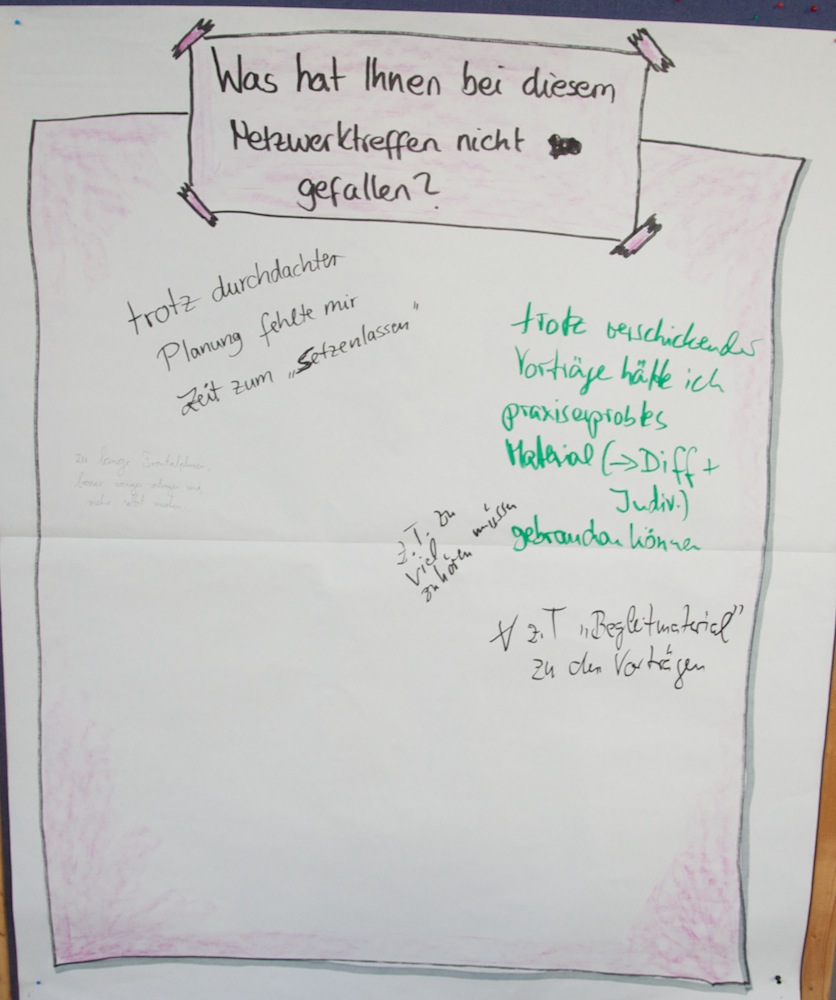 Was hat Ihnen bei diesem
Netzwerktreffen nicht
gefallen?
trotz durchdachter
Planung fehlte mir
Zeit zum „Setzenlassen"
trotz verschickender
Vorträge hätte ich
praxiserprobtes
Material (→Diff +
Indiv.)
gebrauchen können
zu lange
z.T. zu
viel
zuhören müssen
z.T „Begleitmaterial"
zu den Vorträgen